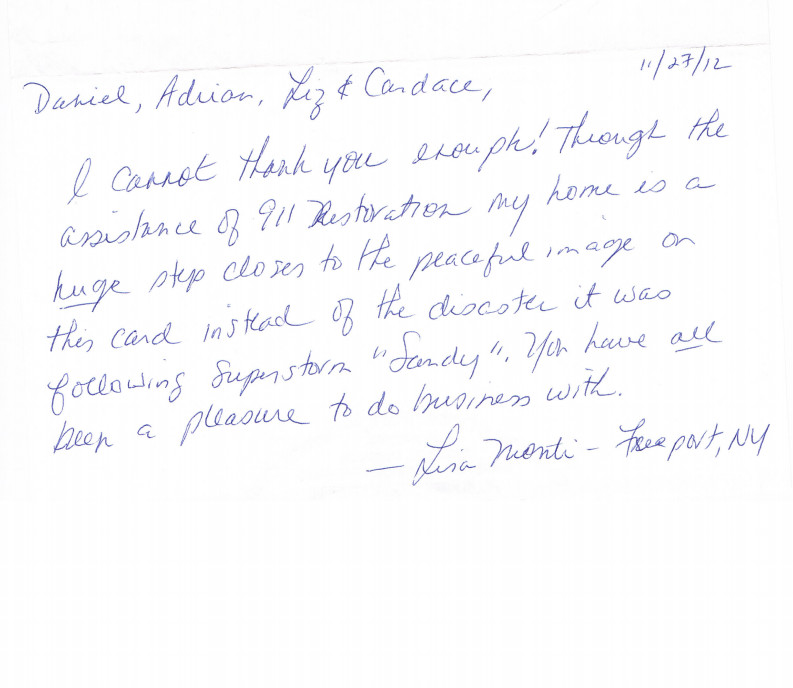 11/27/12
Daniel, Adrian, Liz & Candace,
I cannot thank you enough! Through the
assistance of 911 Restoration my home is a
huge step closer to the peaceful image on
this card instead of the disaster it was
following Superstorm "Sandy". You have all
been a pleasure to do business with.
— Lisa Monti - Freeport, NY